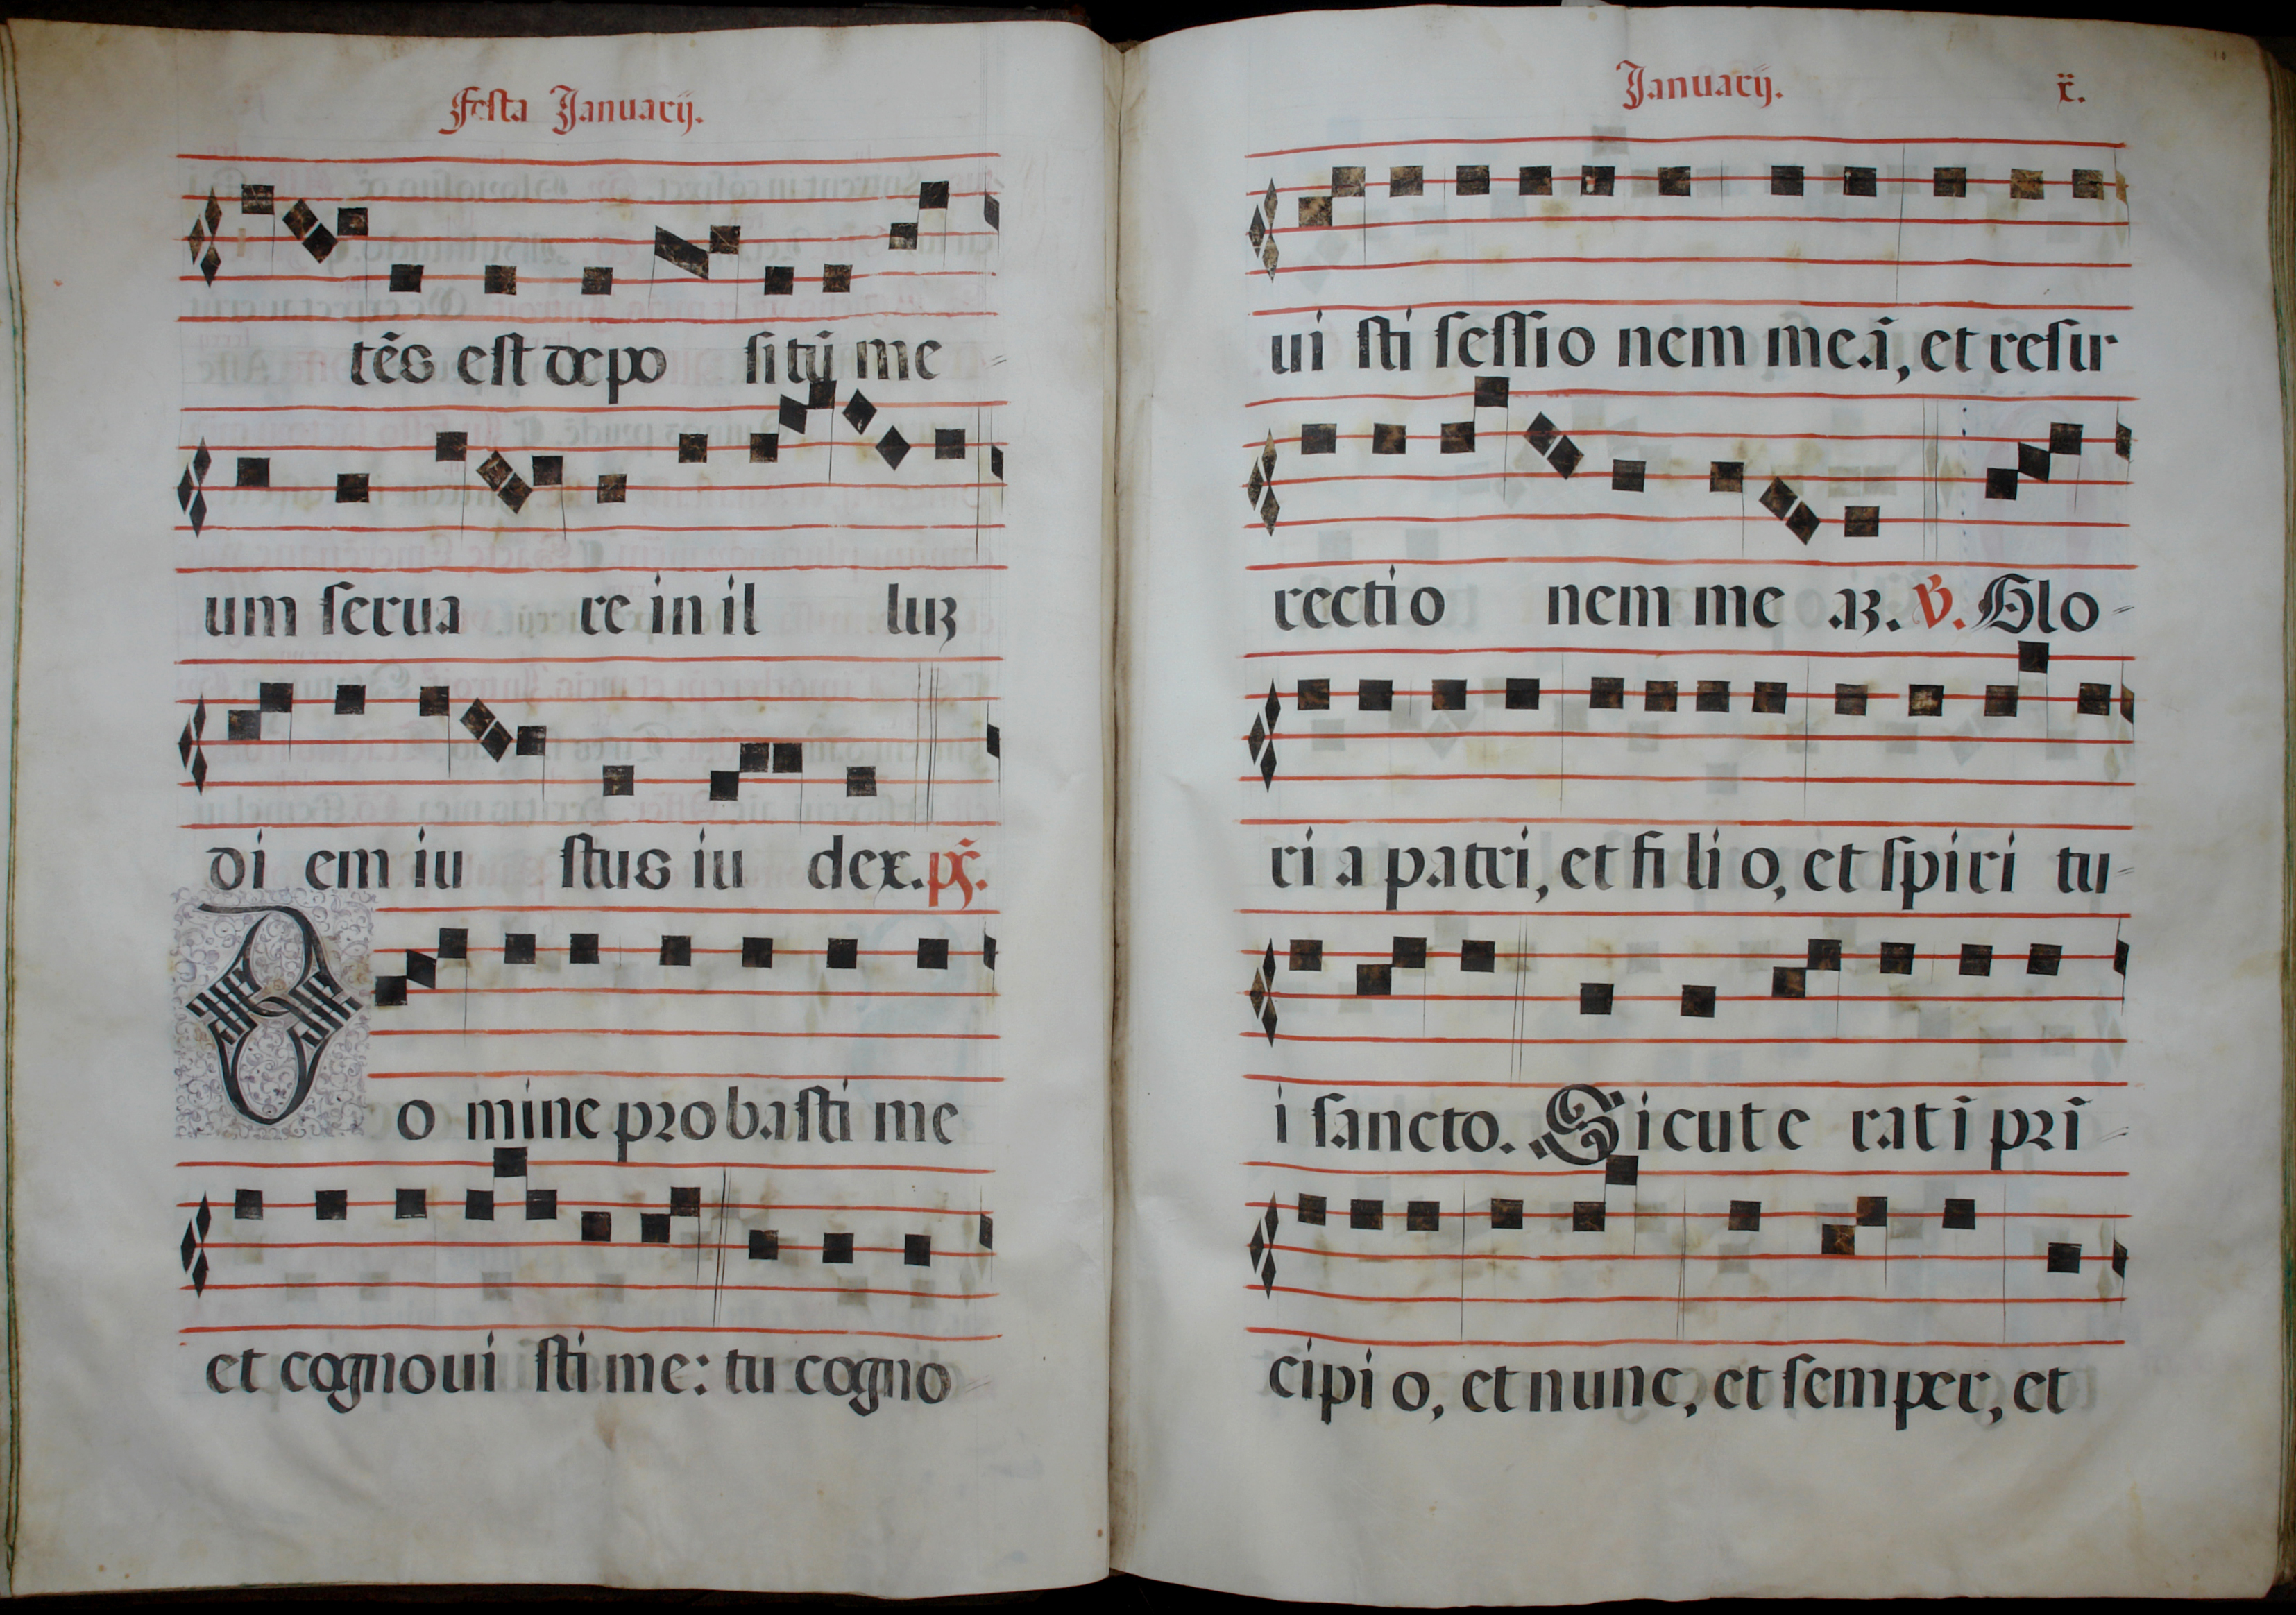 Festa Januarij.
tẽs est depo situ̅ me-
um serua re in il luʒ
di em iu stus iu dex. ps̃.
Domine probasti me
et cognoui sti me: tu cogno-
Januarij. x̃.
ui sti sessio nem mea̅, et resur
rectio nem me aʒ. V. Glo-
ri a patri, et fi li o, et spiri tu-
i sancto. Sicut e rat i̅ pri̅-
cipi o, et nunc, et semper, et